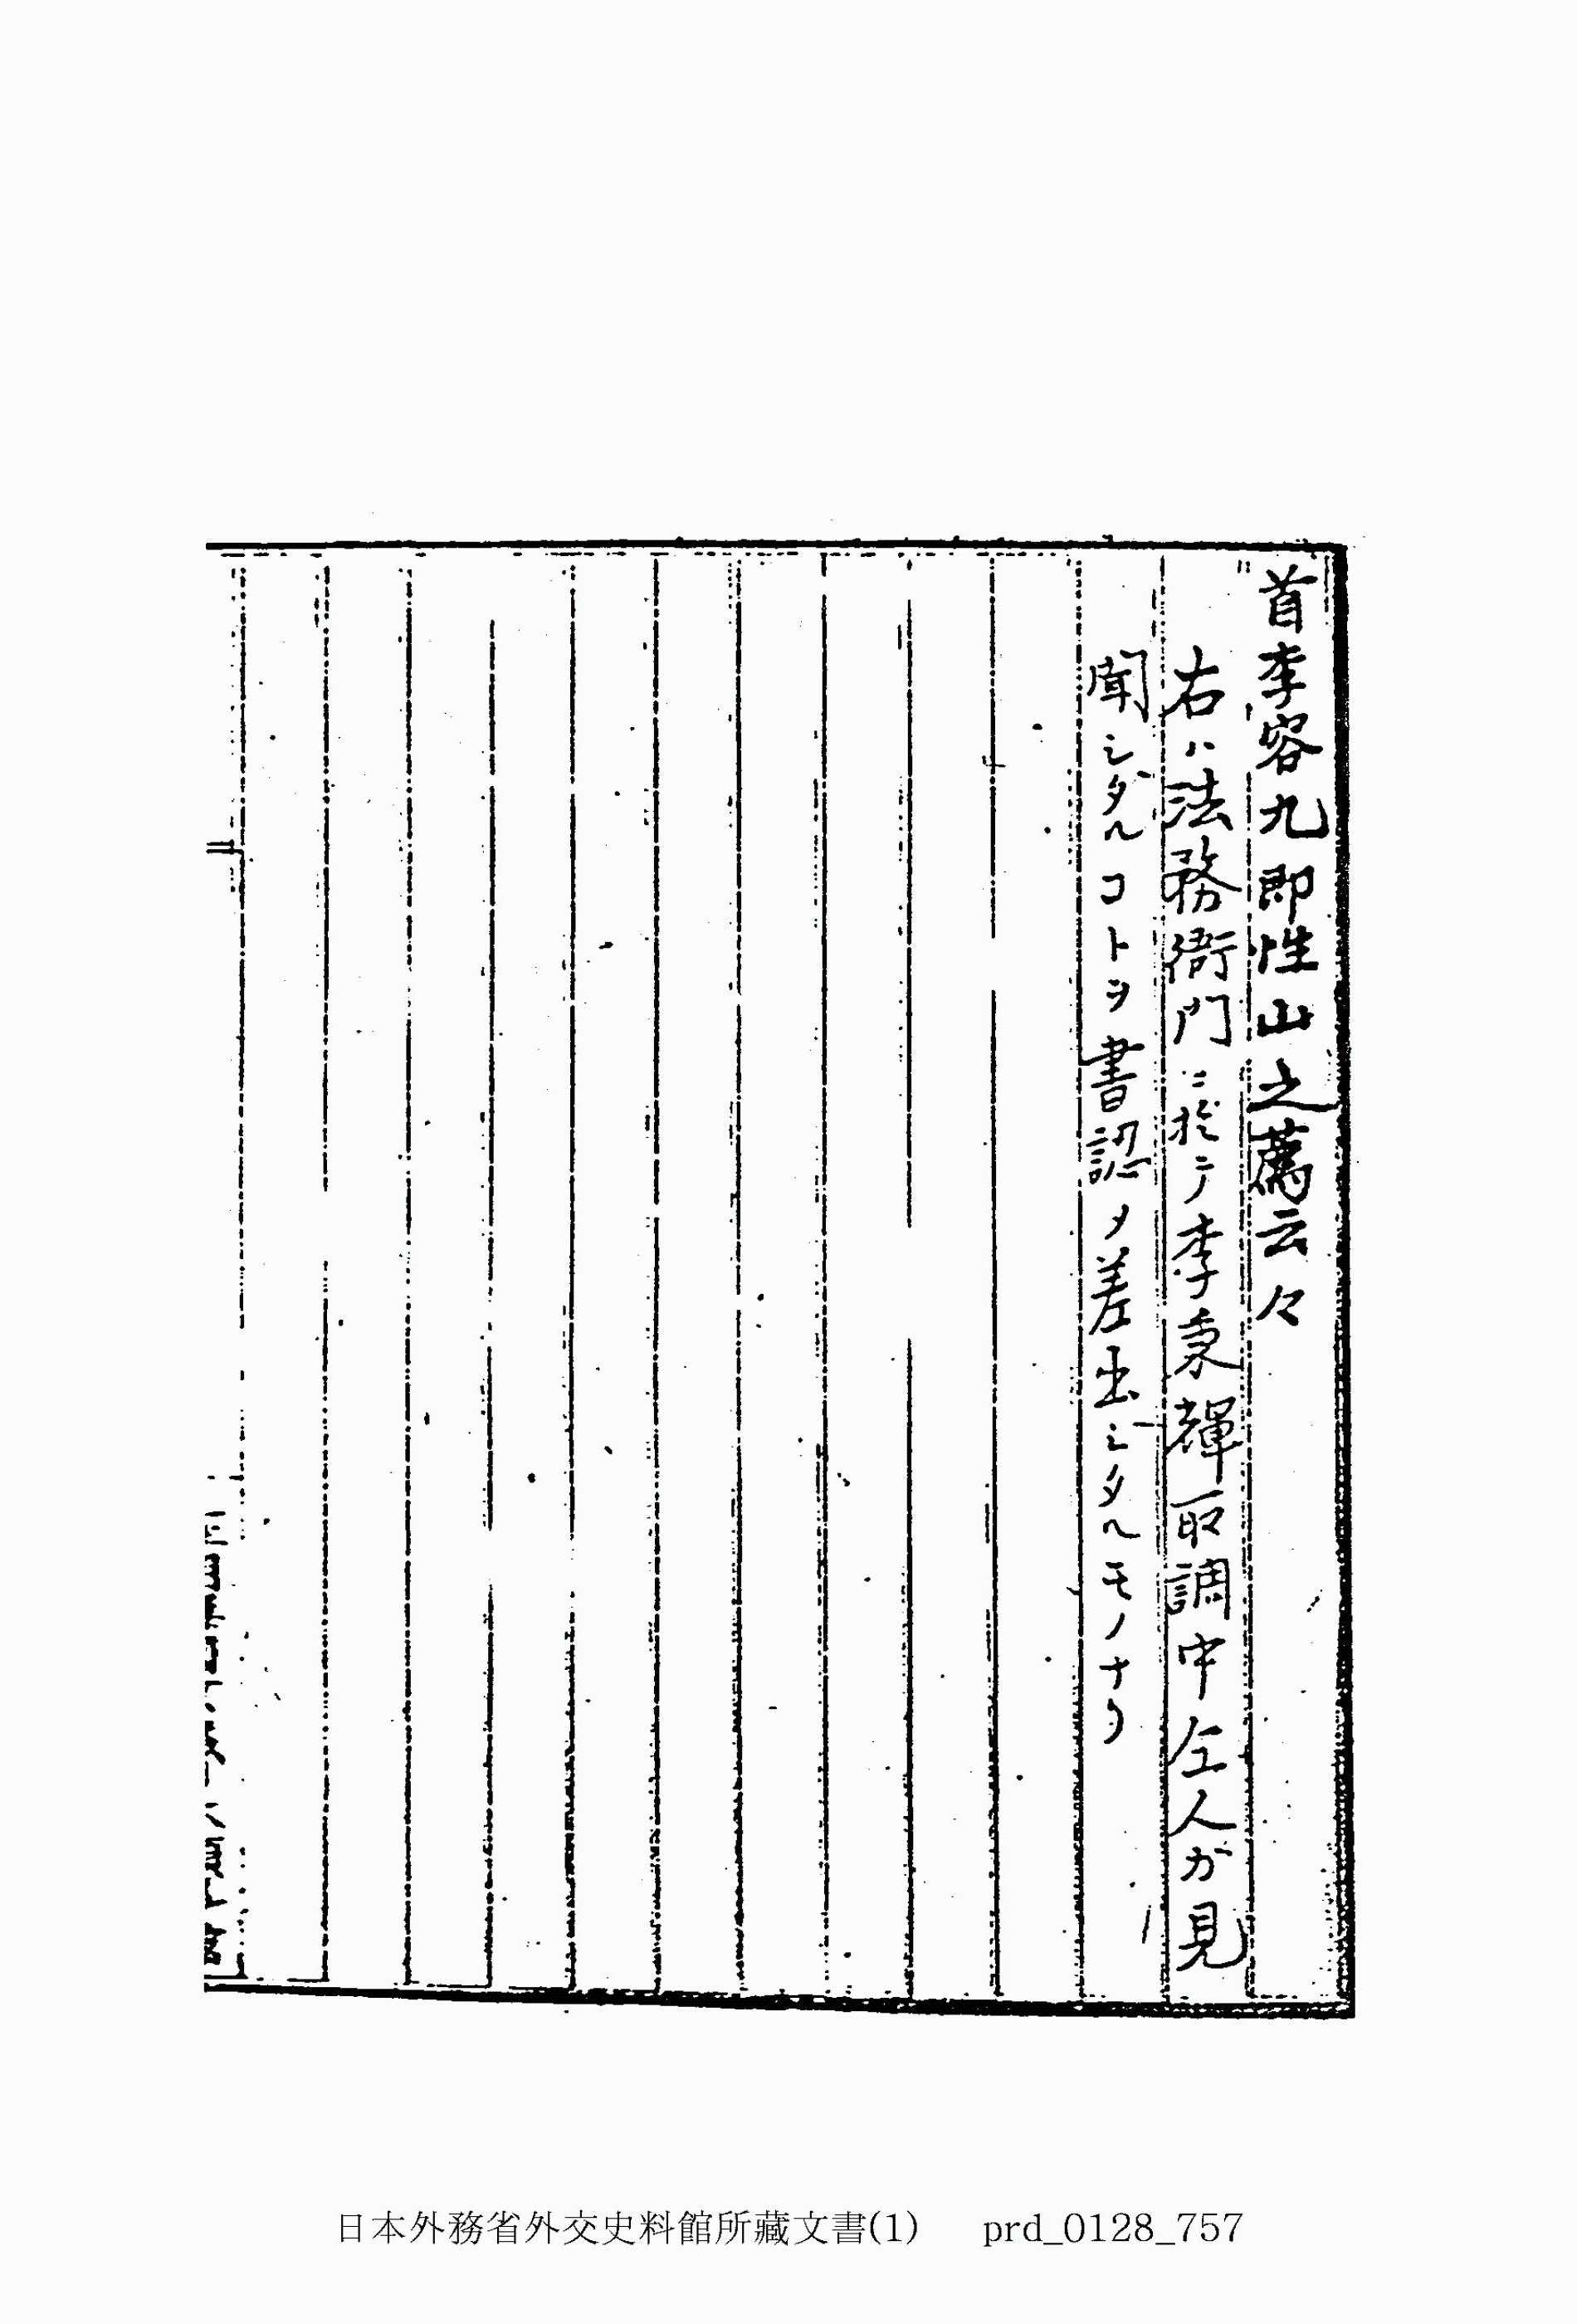 首李容九即性山之薦云々
右ハ法務衙門ニ於テ李秉輝取調中仝人ガ見
聞シタルコトヲ書認メ差出シタルモノナリ
日本外務省外交史料館所藏文書(1) prd_0128_757